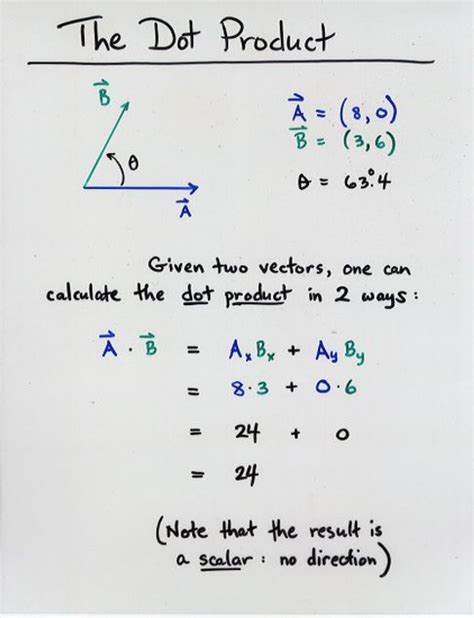 The Dot Product
B⃗
θ
A⃗
A⃗ = (8,0)
B⃗ = (3,6)
θ = 63°.4
Given two vectors, one can
calculate the dot product in 2 ways:
A⃗ · B⃗ = AₓBₓ + AyBy
= 8·3 + 0·6
= 24 + 0
= 24
(Note that the result is
a scalar : no direction)